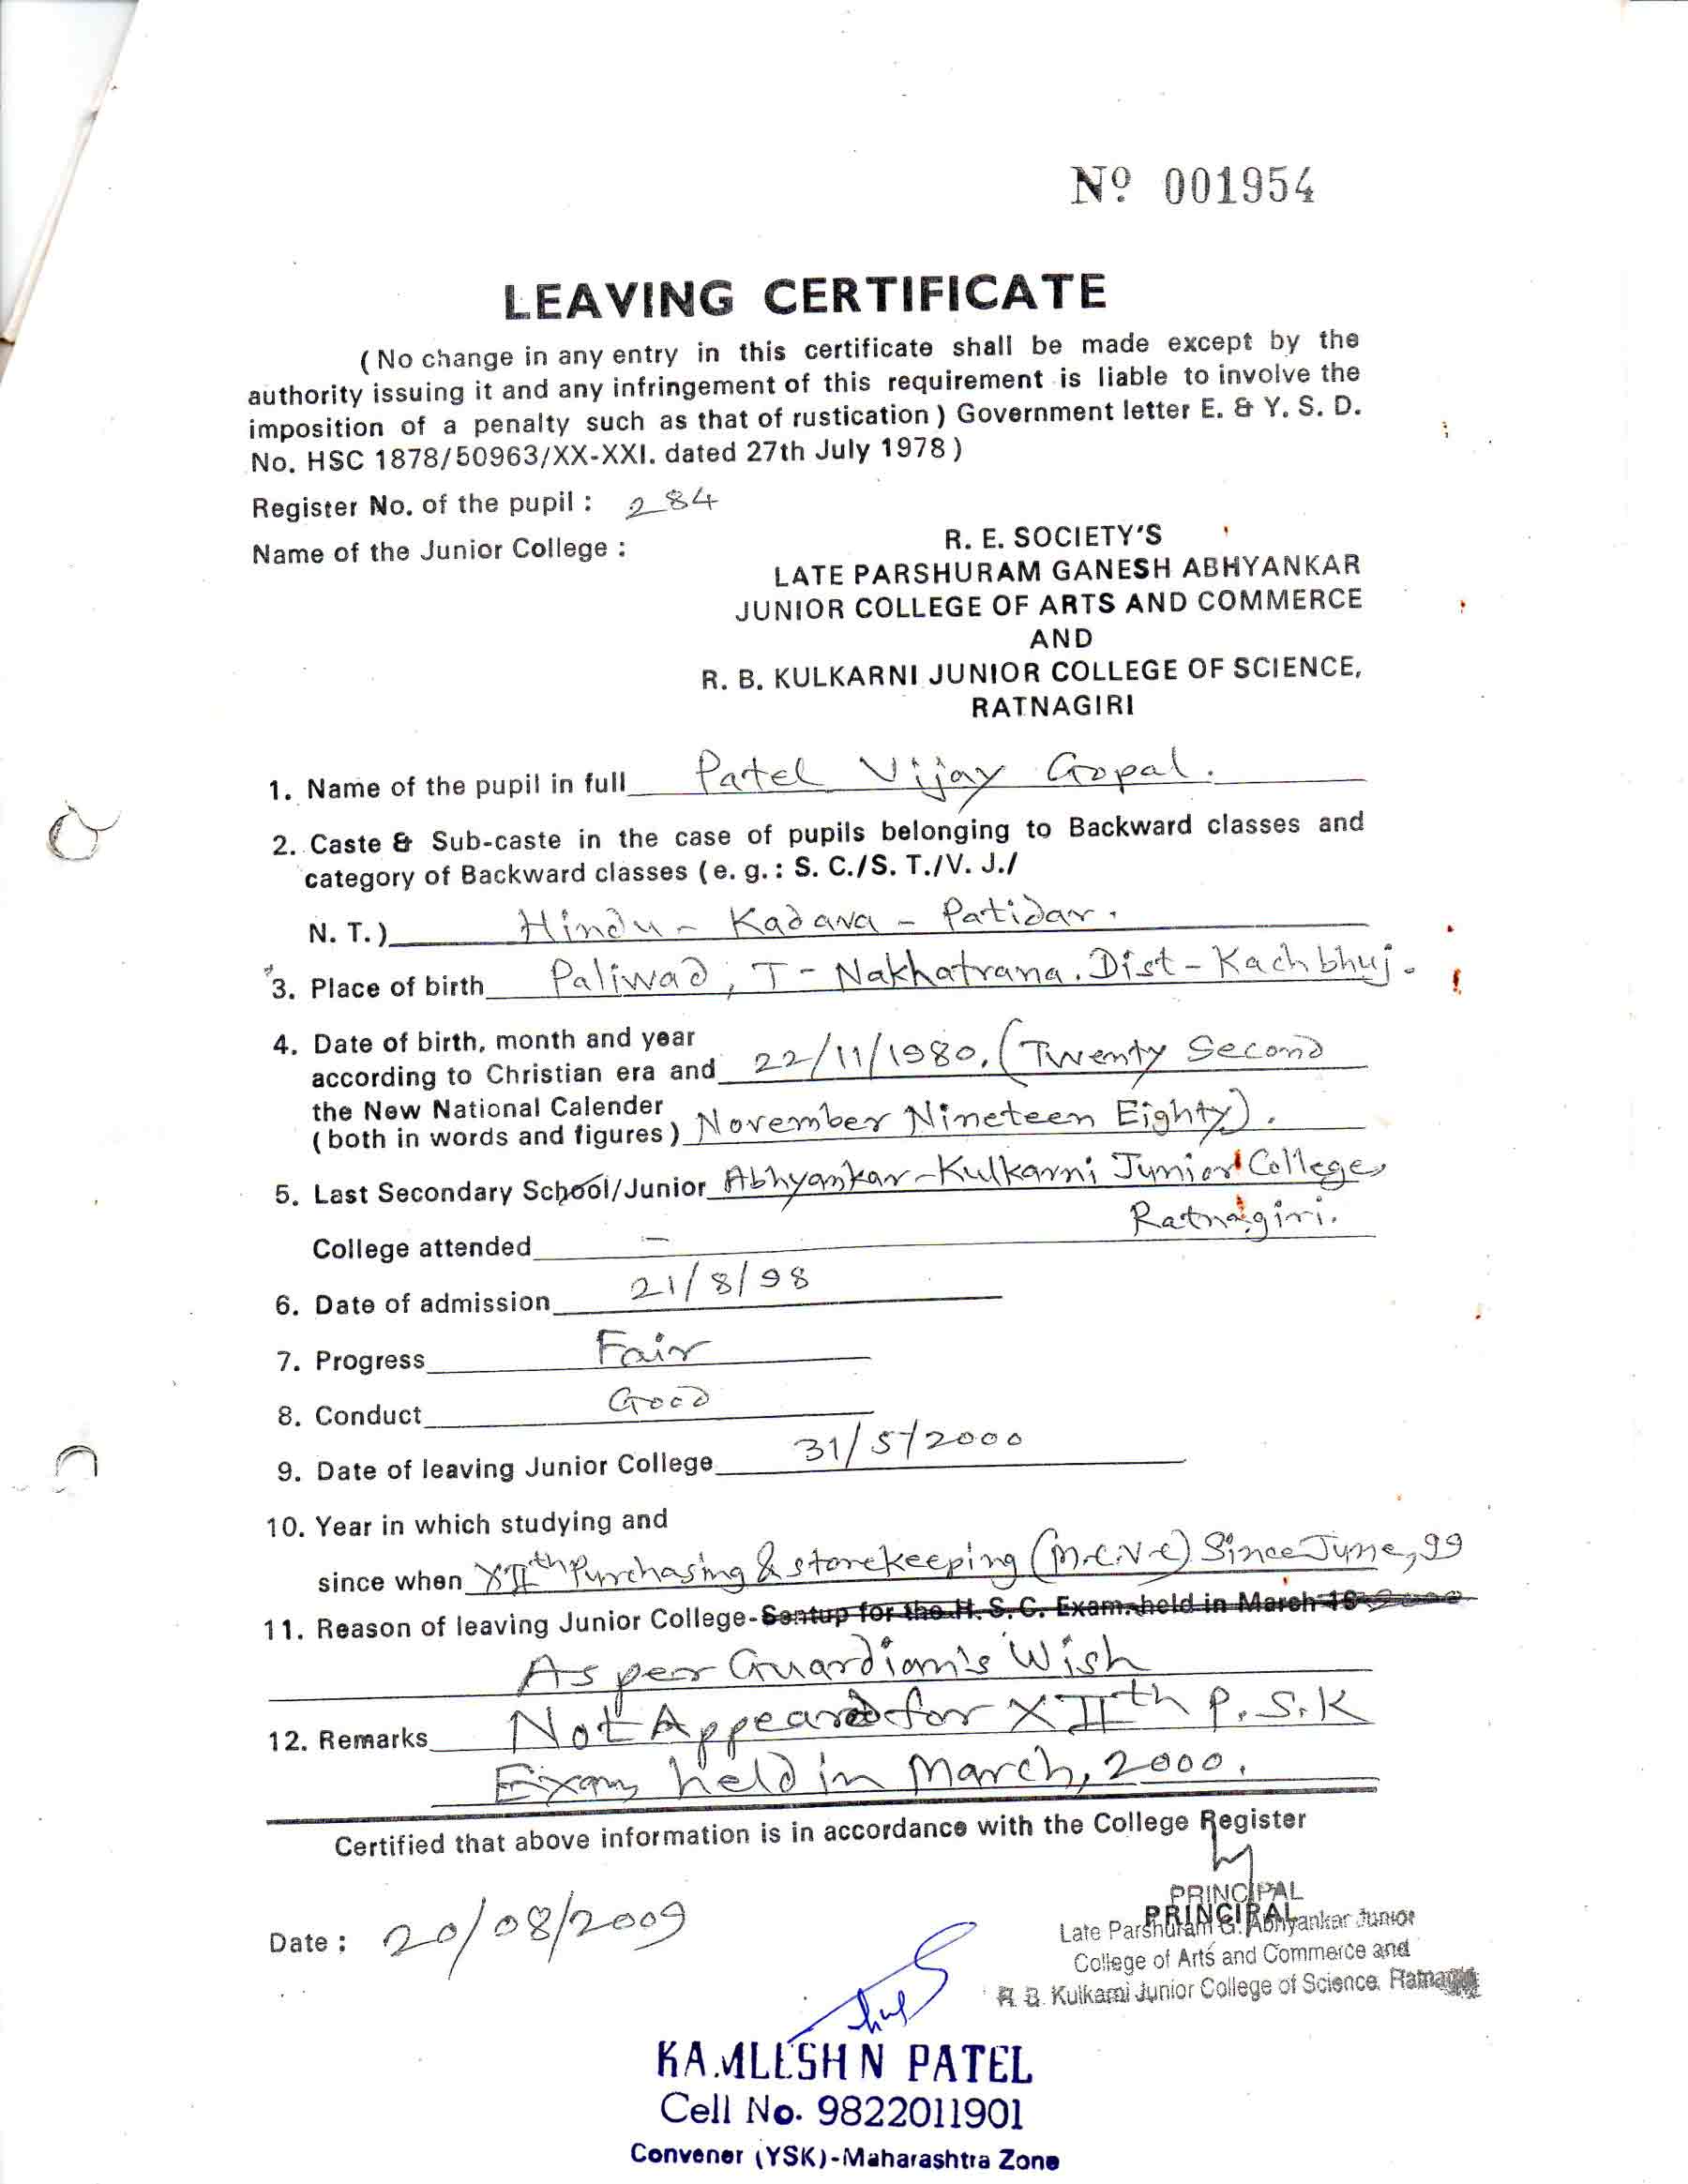 Nº 001954
LEAVING CERTIFICATE
( No change in any entry in this certificate shall be made except by the
authority issuing it and any infringement of this requirement is liable to involve the
imposition of a penalty such as that of rustication ) Government letter E. & Y. S. D.
No. HSC 1878/50963/XX-XXI. dated 27th July 1978 )
Register No. of the pupil : 284
Name of the Junior College :
R. E. SOCIETY'S
LATE PARSHURAM GANESH ABHYANKAR
JUNIOR COLLEGE OF ARTS AND COMMERCE
AND
R. B. KULKARNI JUNIOR COLLEGE OF SCIENCE,
RATNAGIRI
1. Name of the pupil in full Patel Vijay Gopal.
2. Caste & Sub-caste in the case of pupils belonging to Backward classes and
category of Backward classes ( e. g. : S. C./S. T./V. J./
N. T. ) Hindu - Kadava - Patidar.
3. Place of birth Paliwad, T - Nakhatrana. Dist - Kachbhuj.
4. Date of birth, month and year
according to Christian era and 22/11/1980. (Twenty Second
the New National Calender
( both in words and figures ) November Nineteen Eighty).
5. Last Secondary School/Junior Abhyankar-Kulkarni Junior College,
Ratnagiri.
College attended —
6. Date of admission 21/8/98
7. Progress Fair
8. Conduct Good
9. Date of leaving Junior College 31/5/2000
10. Year in which studying and
since when XIIth Purchasing & storekeeping (M.C.V.C) Since June, 99
11. Reason of leaving Junior College - Sentup for the H. S. C. Exam. held in March 19 2000
As per Guardian's Wish
12. Remarks Not Appeared for XIIth P.S.K
Exam, held in March, 2000.
Certified that above information is in accordance with the College Register
PRINCIPAL
PRINCIPAL
Late Parshuram G. Abhyankar Junior
College of Arts and Commerce and
R. B. Kulkarni Junior College of Science. Ratnagiri
Date : 20/08/2009
KAMLESH N PATEL
Cell No. 9822011901
Convener (YSK)-Maharashtra Zone